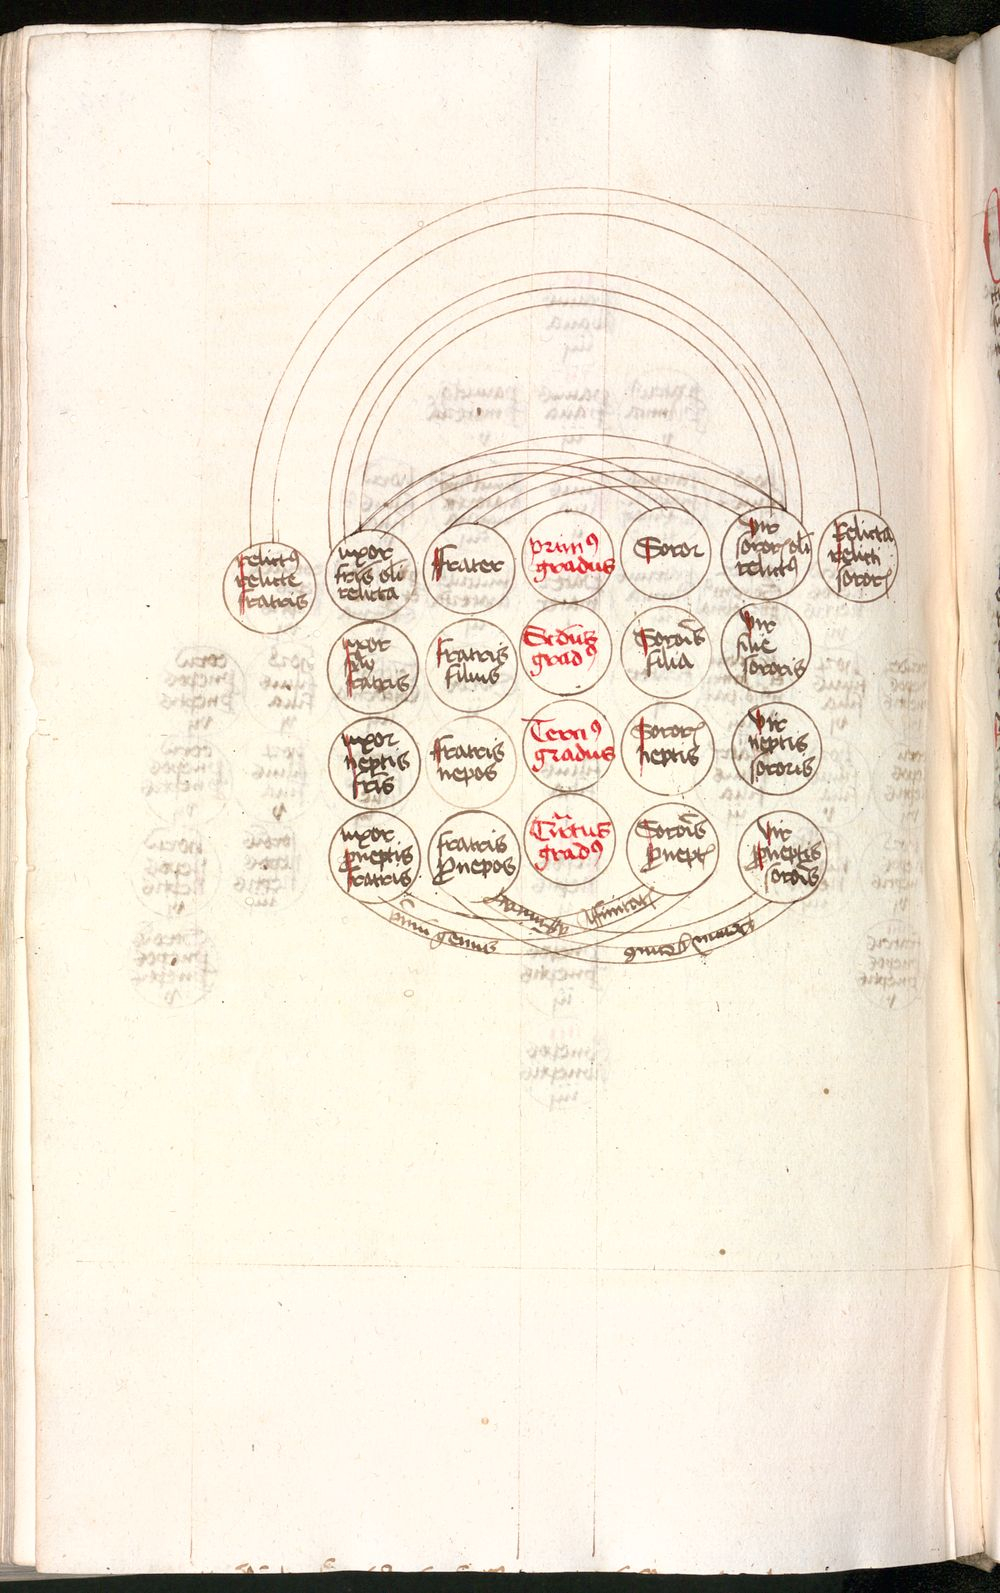 relictꝰ
relicte
fratris
uxor
fris̄ oli
relicta
frater
primꝰ
gradus
Soror
Vir
sororꝭ oli
relictꝰ
Relicta
relicti
sororꝭ
uxor
filij
fratris
fratris
filius
Secdus
gradꝰ
Sorois̄
filia
Vir
filie
sororis
uxor
neptis
fris̄
fratris
nepos
Terciꝰ
gradus
Sororꝭ
neptis
Vir
neptis
sororis
uxor
ꝓneptis
fratris
fratris
ꝓnepos
Qrtus
gradꝰ
Sorois̄
ꝓneptꝭ
Vir
ꝓneptis
sorois̄
affinitatꝭ
primū genus